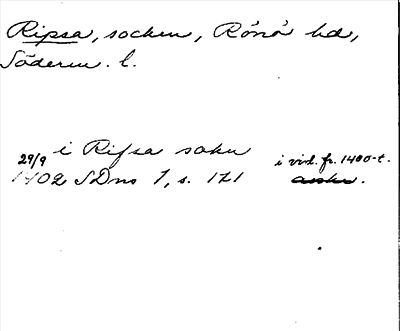 Ripsa, socken, Rönö hd,
Söderm. l.
i Rifsa sokn
29/9 1402 SDns 1, s. 171
i vid. fr. 1400-t.